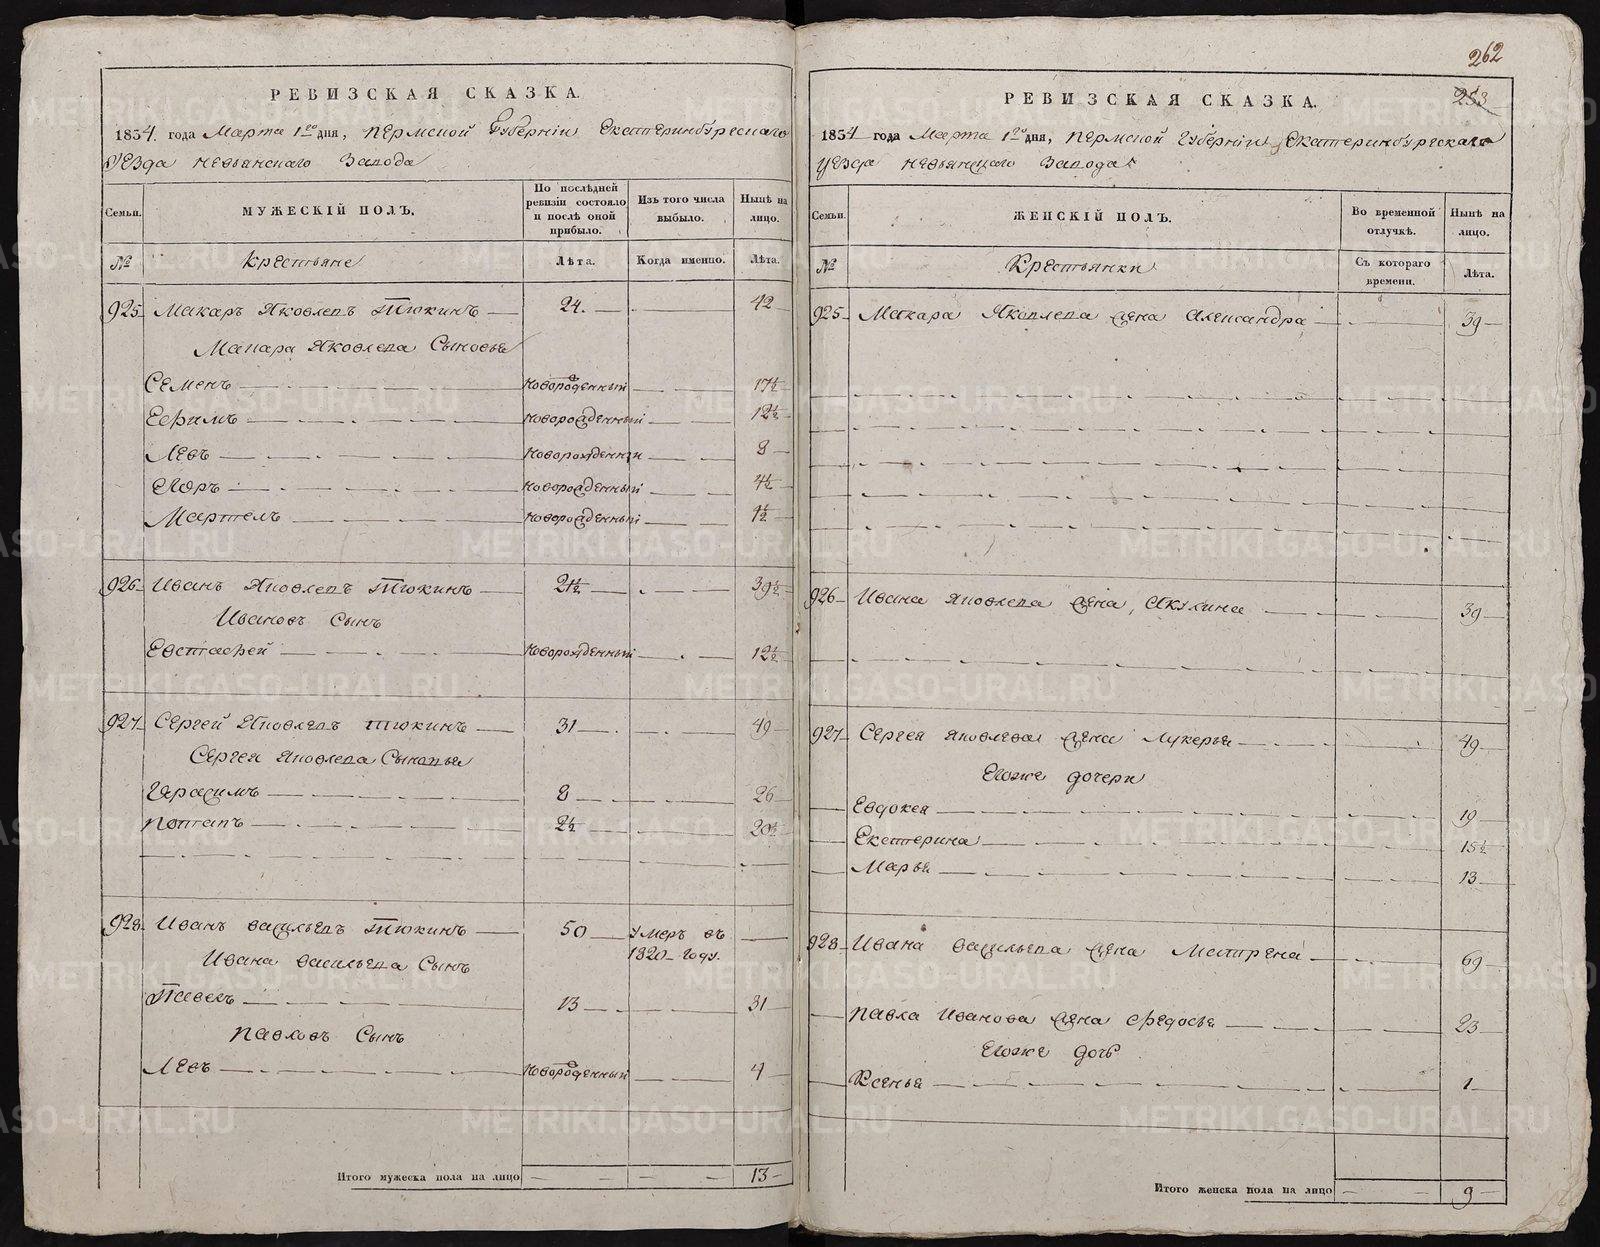 262
253
РЕВИЗСКАЯ СКАЗКА.
1834. года Марта 1го дня, Пермской Губернiи Екатеринбургскаго
уезда Невьянскаго Завода
Семьи.
МУЖЕСКIЙ ПОЛЪ.
По послѣдней ревизiи состояло и послѣ оной прибыло.
Изъ того числа выбыло.
Нынѣ на лицо.
№
Крестьяне
Лѣта.
Когда именно.
Лѣта.
925 Макаръ Яковлевъ Тюкинъ 24. 42
Макара Яковлева Сыновья
Семенъ новорожденный 17½
Ефимъ новорожденный 12½
Левъ новорожденный 8
новорожденный 4½
Мартемъ новорожденный 1½
926 Иванъ Яковлевъ Тюкинъ 21½ 39½
Ивановъ Сынъ
Евстафей новорожденный 12½
927 Сергей Яковлевъ Тюкинъ 31 49
Сергея Яковлева Сыновья
Гарасимъ 8 26
Потапъ 2½ 20½
928 Иванъ Васильевъ Тюкинъ 50 умеръ въ
1820 году.
Ивана Васильева Сынъ
Павелъ 13 31
Павловъ Сынъ
Левъ новорожденный 4
Итого мужеска пола на лицо 13
РЕВИЗСКАЯ СКАЗКА.
1834 года Марта 1го дня, Пермской Губернiи Екатеринбургскаго
уезда Невьянскаго Завода
Семьи.
ЖЕНСКIЙ ПОЛЪ.
Во временной отлучкѣ.
Нынѣ на лицо.
№
Крестьянки
Съ котораго времени.
Лѣта.
925 Макара Яковлева жена Александра 39
926 Ивана Яковлева жена, Акулина 39
927 Сергея Яковлева жена Лукерья 49
Егоже дочери
Евдокея 19
Екетерина 15½
Марья 13
928 Ивана Васильева жена Матрена 69
Павла Иванова жена Федосья 23
Егоже дочь
Ксенья 1
Итого женска пола на лицо 9
METRIKI.GASO-URAL.RU